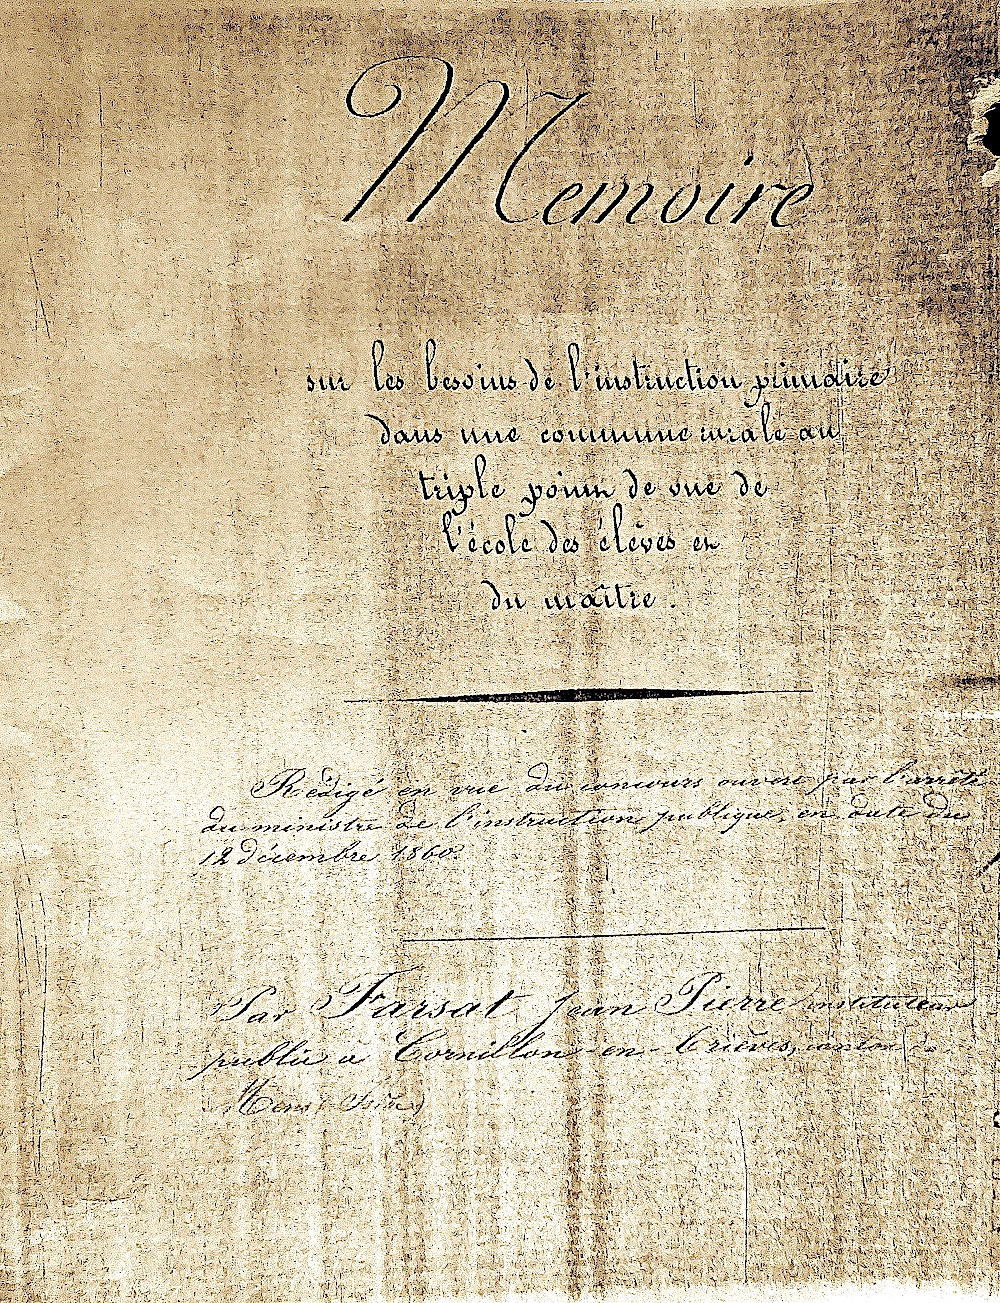 Memoire
sur les besoins de l'instruction primaire
dans une commune rurale au
triple point de vue de
l'école des élèves et
du maître.
Rédigé en vue du concours ouvert par l'arrêté
du ministre de l'instruction publique, en date du
12 décembre 1860.
Par Farsat Jean Pierre instituteur
public à Cornillon-en-Trièves, canton de
Mens (Isère)